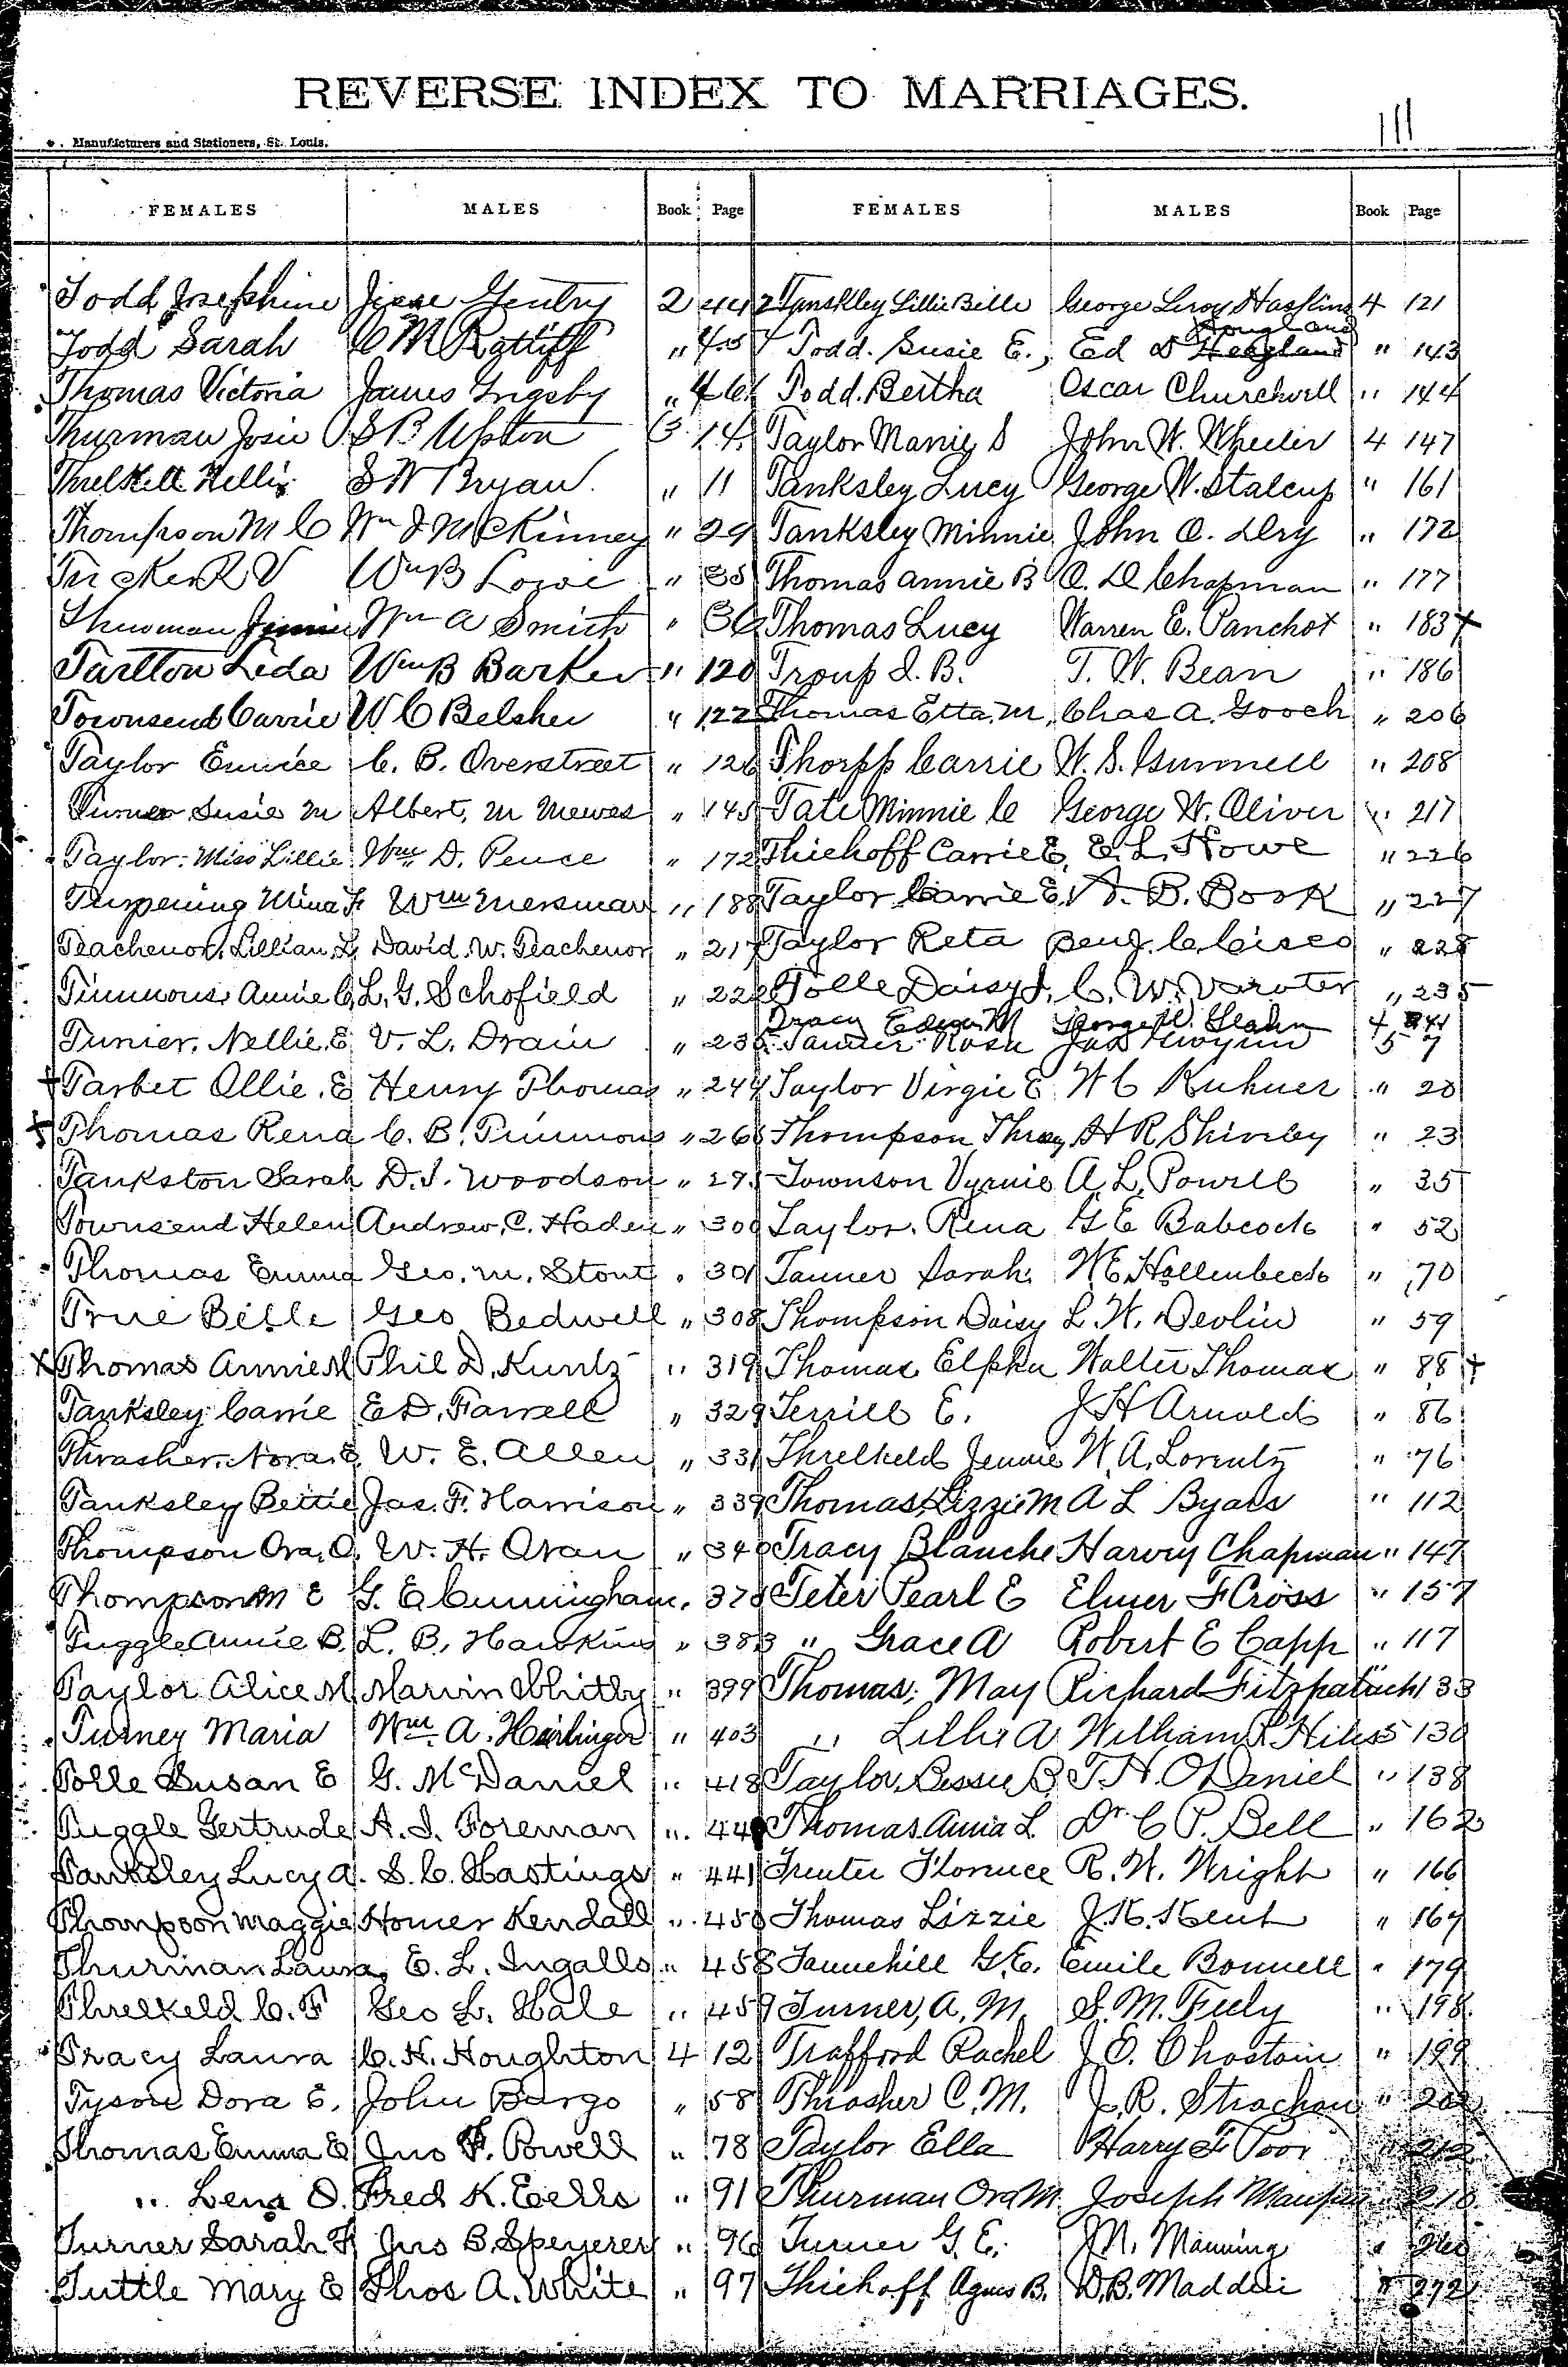 REVERSE INDEX TO MARRIAGES.
111
Manufacturers and Stationers, St. Louis.
FEMALES MALES Book Page FEMALES MALES Book Page
Todd Josephine Jesse Gentry 2 442 Tynskley Lillie Belle George Leroy 4 121
Todd Sarah C M Ratliff " Todd. Susie E., Ed D Hougland " 143
Thomas Victoria James Grigsby " 461 Todd. Bertha Oscar Churchwell " 144
Thurman Josie S B Upton 3 14 Taylor Manie S John W. Wheeler 4 147
Threlkeld Nellie S W Bryan. " 11 Tanksley Lucy George W. Stalcup " 161
Thompson M C Wm J McKinney " 29 Tanksley Minnie John O. Dry " 172
Tucker R V Wm B Lowe " 35 Thomas Annie B O. D Chapman " 177
Wm A Smith " 36 Thomas Lucy Warren E. Panchot " 183 +
Tarlton Leda Wm B Barker " 120 Troup I. B. T. W. Bean " 186
Townsend Carrie W C Belsher " 122 Thomas Etta. M. Chas A. Gooch " 206
Taylor Eunice C. B. Overstreet " 126 Thorpp Carrie W. S. Gunnell " 208
Turner Susie M Albert, M Mewes " 145 Tate Minnie C George W. Oliver " 217
Taylor. Miss Lillie Wm D. Pence " 172 Thiehoff Carrie E, E. L. Howe " 226
Terpening Mina F Wm Mersman " 188 Taylor Carrie E. A. B. Bock " 227
Teachenor, Lillian L David. W. Teachenor " 217 Taylor Reta Benj. C. Cisco " 228
Timmons Annie C L. G. Schofield " 222 Tolle Daisy J. C. W. Varoter " 235
Tracy Edna M George W. 4 241
Turner, Nellie. E V. L. Drain " 235 Tanner Rosa Jas Gwynn 5 7
+ Tarbet Ollie. E Henry Thomas " 244 Taylor Virgie E W C Kuhner " 20
+ Thomas Rena C. B. Timmons " 266 Thompson H R Shiveley " 23
Tankston Sarah D. I. Woodson " 295 Townson Vyrnie A. L. Powell " 35
Townsend Helen Andrew, C. Haden " 300 Taylor. Rena G E Babcock " 52
Thomas Emma Geo. M. Stout " 301 Tanner Sarah W E Hollenbeck " 70
True Belle Geo Bedwell " 308 Thompson Daisy L. W. Devlin " 59
+ Thomas Annie M Phil D. Kuntz " 319 Thomas Elpha Walter Thomas " 88 +
Tanksley Carrie E. D. Farrell " 329 Terrill E. J H Arnold " 86
Thrasher. Nora. E. W. E. Allen " 331 Threlkeld Jennie W. A. Lorentz " 76
Tanksley Bettie Jas. F. Harrison " 339 Thomas, Lizzie M A L Byars " 112
Thompson Ora, O. W. H. Oran " 340 Tracy Blanche Harvey Chapman " 147
Thompson M E G. E Cunningham. 378 Teter Pearl E Elmer F Cross " 157
Tuggle Annie B. L. B. Hawkins " 383 " Grace A Robert E Capp " 117
Taylor Alice M Marvin Whitby " 399 Thomas, May Richard Fitzpatrick " 133
Turney Maria Wm. A. Heirlinger " 403 " Lillie A William R Hiles 5 130
Tolle Susan E G. McDaniel " 418 Taylor, Bessie B. T. H. O Daniel " 138
Tuggle Gertrude A. I. Foreman " 440 Thomas Annia L Dr C P. Bell " 162
Tanksley Lucy A. S. C. Hastings " 441 Trenter Florence R. W. Wright " 166
Thompson Maggie Homer Kendall " 450 Thomas Lizzie J. K. Kent " 167
Thurman Laura, E. L. Ingalls " 458 Tannehill G. E. Emile Bonnell " 179
Threlkeld. C. F Geo L. Hale " 459 Turner, A. M. S. M. Feely " 198
Tracy Laura C. H. Houghton 4 12 Trafford Rachel J. O. Chastain " 199
Tyson Dora E. John Burgo " 58 Thrasher C. M. J. R. Strachan " 202
Thomas Emma E Jno F. Powell " 78 Taylor Ella Harry F Poor " 212
" Lena O. Fred K. Eells " 91 Thurman Ora M. Joseph Maupin 218
Turner Sarah F Jno B. Speyerer " 96 Turner G. E. J N. Manning " 260
Tuttle Mary E Thos A. White " 97 Thiehoff Agnes B. D. B. Madden " 272